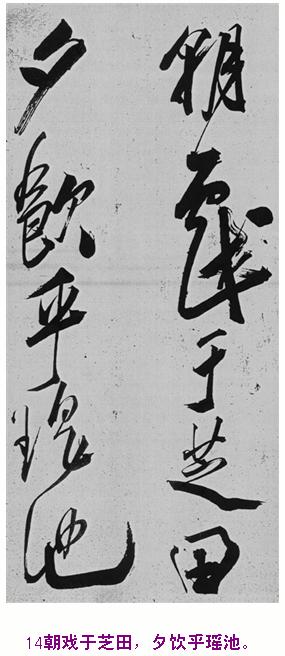 朝戲于芝田
夕飲乎瑶池
14朝戏于芝田，夕饮乎瑶池。